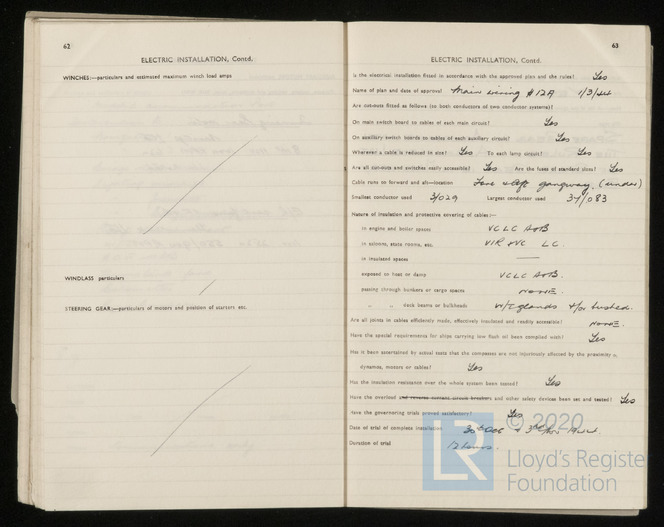 62
ELECTRIC INSTALLATION, Contd.
WINCHES:—particulars and estimated maximum winch load amps
WINDLASS particulars
STEERING GEAR:—particulars of motors and position of starters etc.
63
ELECTRIC INSTALLATION, Contd.
Is the electrical installation fitted in accordance with the approved plan and the rules? Yes
Name of plan and date of approval Main wiring # 12A 1/3/
Are cut-outs fitted as follows (to both conductors of two conductor systems)?
On main switch board to cables of each main circuit? Yes
On auxiliary switch boards to cables of each auxiliary circuit? Yes
Wherever a cable is reduced in size? Yes To each lamp circuit? Yes
Are all cut-outs and switches easily accessible? Yes Are the fuses of standard sizes? Yes
Cable runs to forward and aft—location Fore & aft gangway. (under)
Smallest conductor used 3/029 Largest conductor used 37/083
Nature of insulation and protective covering of cables:—
in engine and boiler spaces VCLC A&B
in saloons, state rooms, etc. VIR & VC LC.
in insulated spaces —
exposed to heat or damp VCLC A&B.
passing through bunkers or cargo spaces NONE.
„ „ deck beams or bulkheads W/T glands &/or bushed.
Are all joints in cables efficiently made, effectively insulated and readily accessible? NONE.
Have the special requirements for ships carrying low flash oil been complied with? Yes
Has it been ascertained by actual tests that the compasses are not injuriously affected by the proximity of
dynamos, motors or cables? Yes
Has the insulation resistance over the whole system been tested? Yes
Have the overload and reverse current circuit breakers and other safety devices been set and tested? Yes
Have the governoring trials proved satisfactory? Yes
Date of trial of complete installation 30th Oct & 3rd Nov
Duration of trial 12 hours.
© 2020
LR
Lloyd's Register
Foundation